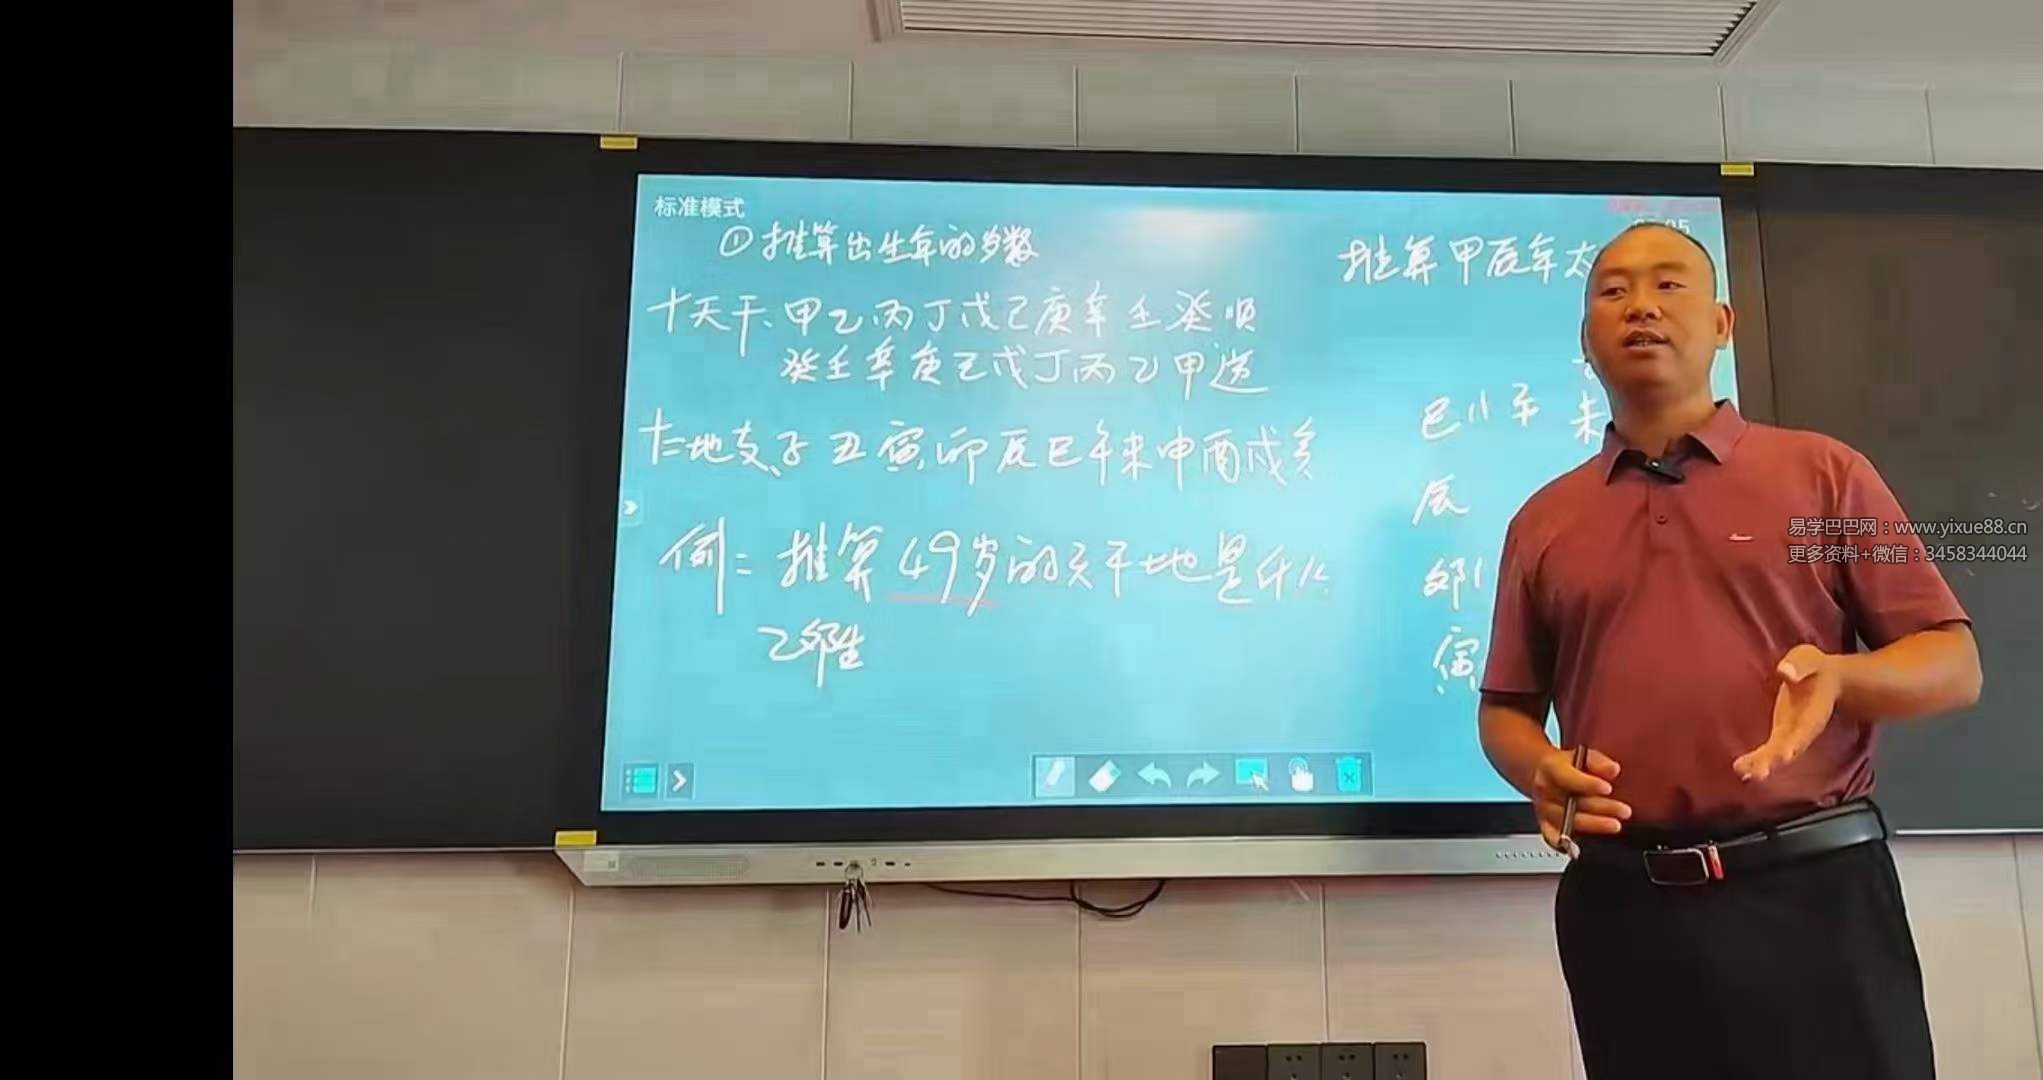 标准模式
①推算出生年的岁数
十天干、甲乙丙丁戊己庚辛壬癸顺
癸壬辛庚己戊丁丙乙甲逆
十二地支、子丑寅卯辰巳午未申酉戌亥
例：推算49岁的天干地是什么
乙卯生
推算甲辰年太
巳11午 未
辰
卯1
寅
易学巴巴网：www.yixue88.cn
更多资料+微信：3458344044